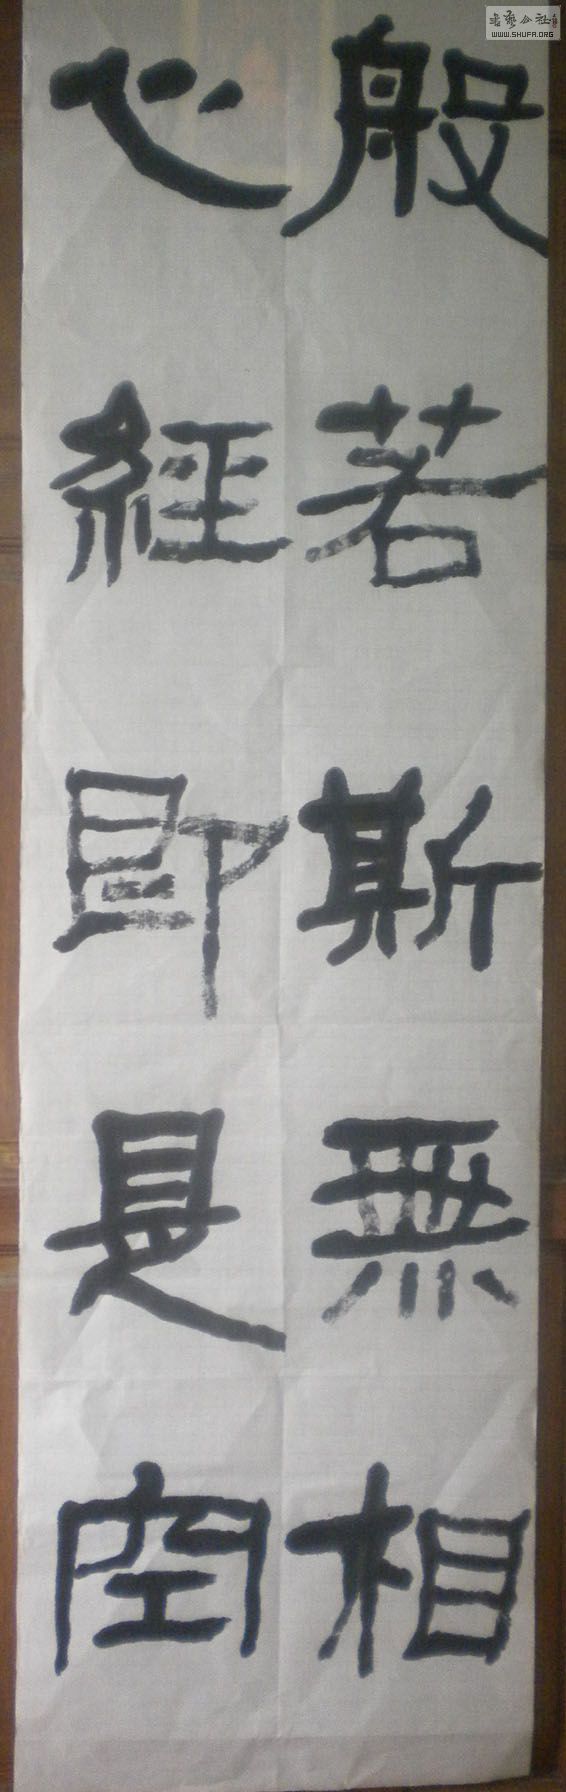 般若斯無相
心經即是空
書藝公社
WWW.SHUFA.ORG